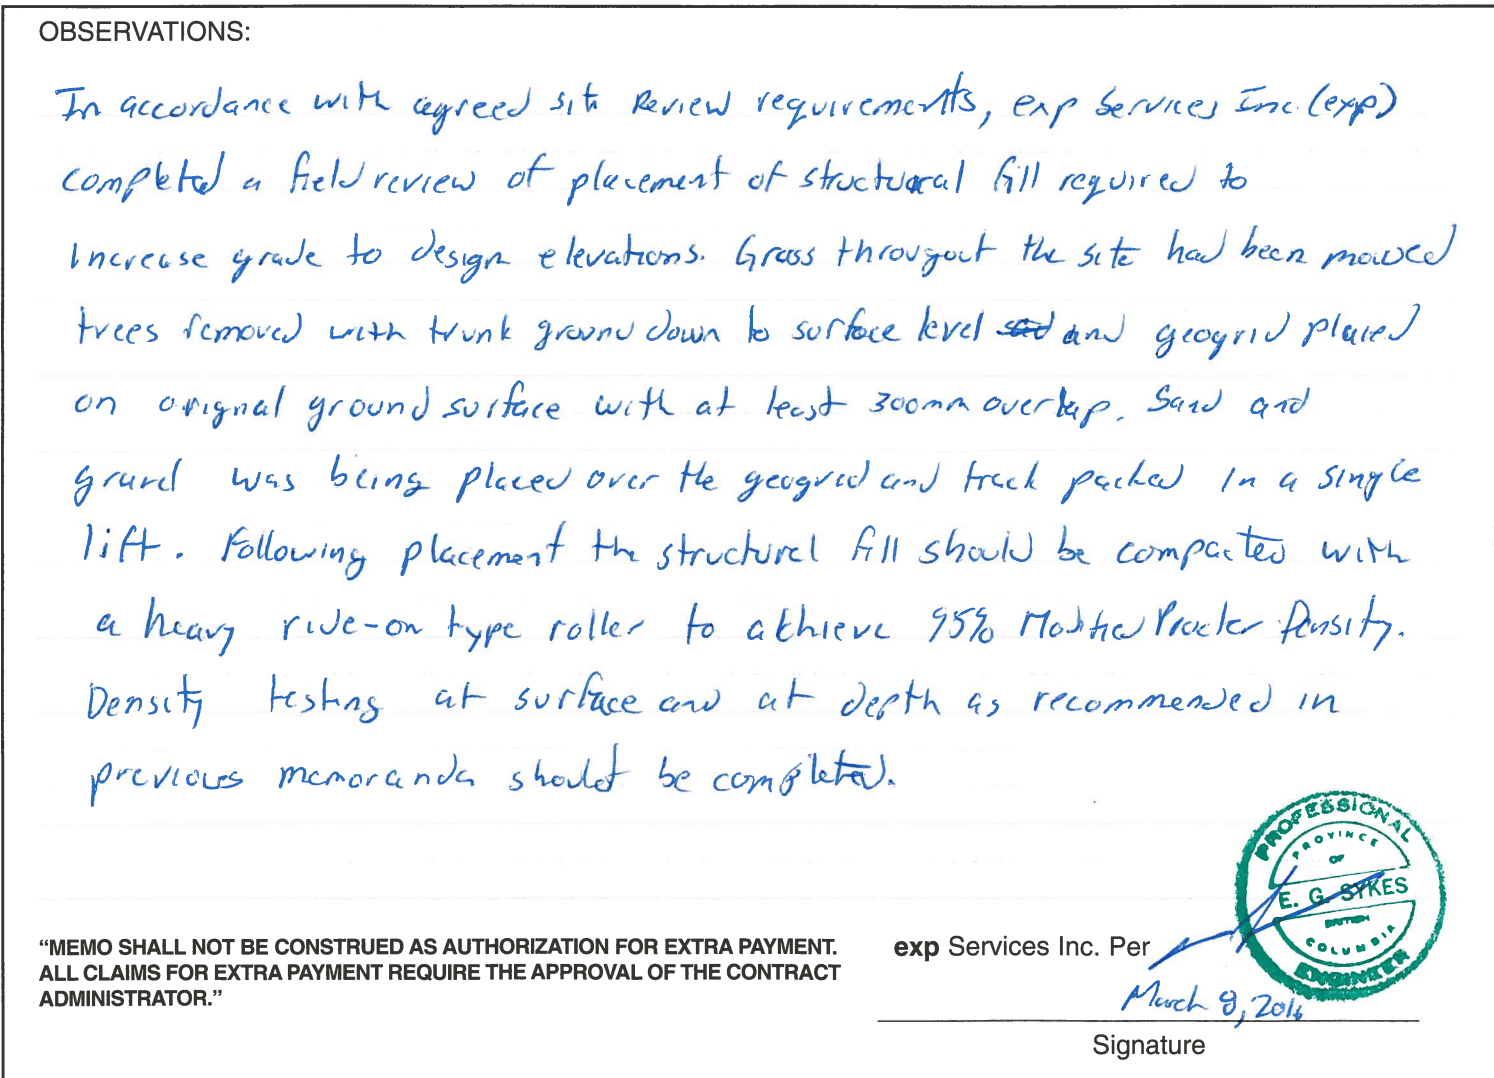 OBSERVATIONS:
In accordance with agreed site Review requirements, exp Services Inc. (exp)
completed a field review of placement of structural fill required to
increase grade to design elevations. Grass througout the site had been mowed
trees removed with trunk ground down to surface level and geogrid placed
on orignal ground surface with at least 300mm overlap. Sand and
gravel was being placed over the geogrid and track packed in a single
lift. Following placement the structural fill should be compacted with
a heavy ride-on type roller to achieve 95% Modified Procter Density.
Density testing at surface and at depth as recommended in
previous memoranda should be completed.
PROFESSIONAL
PROVINCE
OF
E. G. SYKES
BRITISH
COLUMBIA
ENGINEER
“MEMO SHALL NOT BE CONSTRUED AS AUTHORIZATION FOR EXTRA PAYMENT.
ALL CLAIMS FOR EXTRA PAYMENT REQUIRE THE APPROVAL OF THE CONTRACT
ADMINISTRATOR.”
exp Services Inc. Per
March 8, 2016
Signature